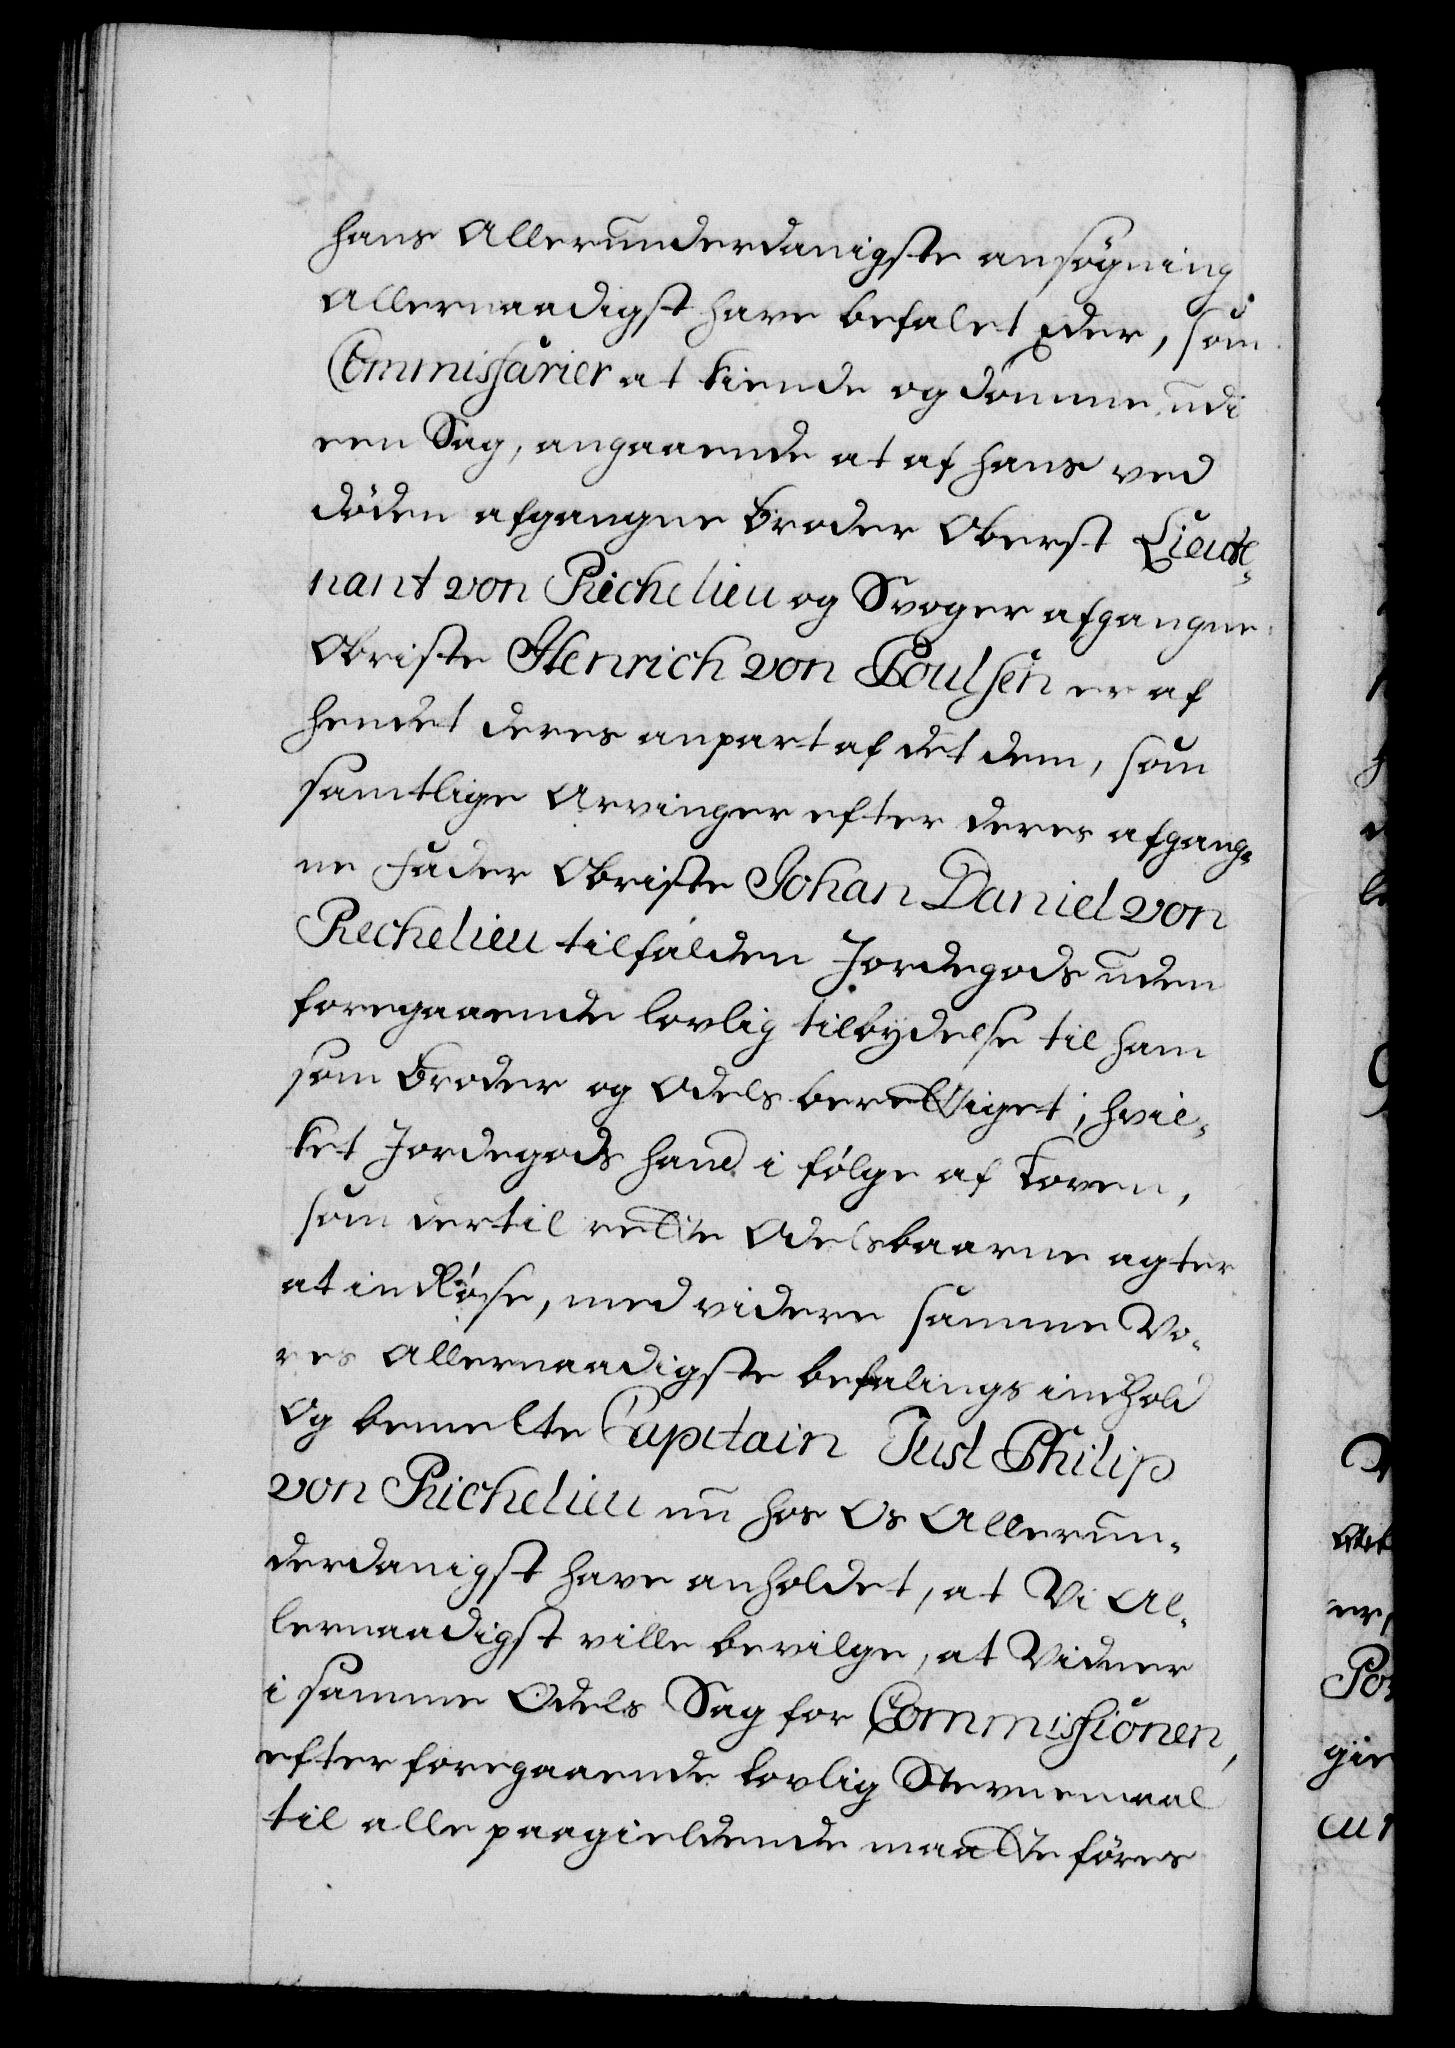 hans Allerunderdanigste ansøgning
Allernaadigst have befalet Eder, som
Commissarier at kiende og dømme udi
een Sag, angaaende at af hans ved
døden afgangne Broder Oberst Lieute-
nant von Richelieu og Svoger afgangne
Obriste Henrich von Poulsen er af
hendet deres anpart af det dem, som
samtlige Arvinger efter deres afgang-
ne Fader Obriste Johan Daniel von
Rechelieu tilfalden Jordegods uden
foregaaende lovlig tilbydelse til ham
som Broder og Odels berettiget; hvil-
ket Jordegods hand i følge af Loven,
som dertil rette Odelsbaarne agter
at indløse, med videre samme Vo-
res Allernaadigste befalings indhold
Og bemelte Capitain Just Philip
von Richelieu nu hos Os Allerun-
derdanigst have anholdet, at Vi Al-
lernaadigst ville bevilge, at Vidner
i samme Odels Sag for Commissionen,
efter foregaaende Lovlig Stevnemaal
til alle paagieldende maatte føres